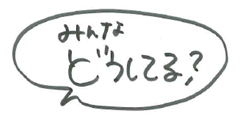 みんな
どうしてる?